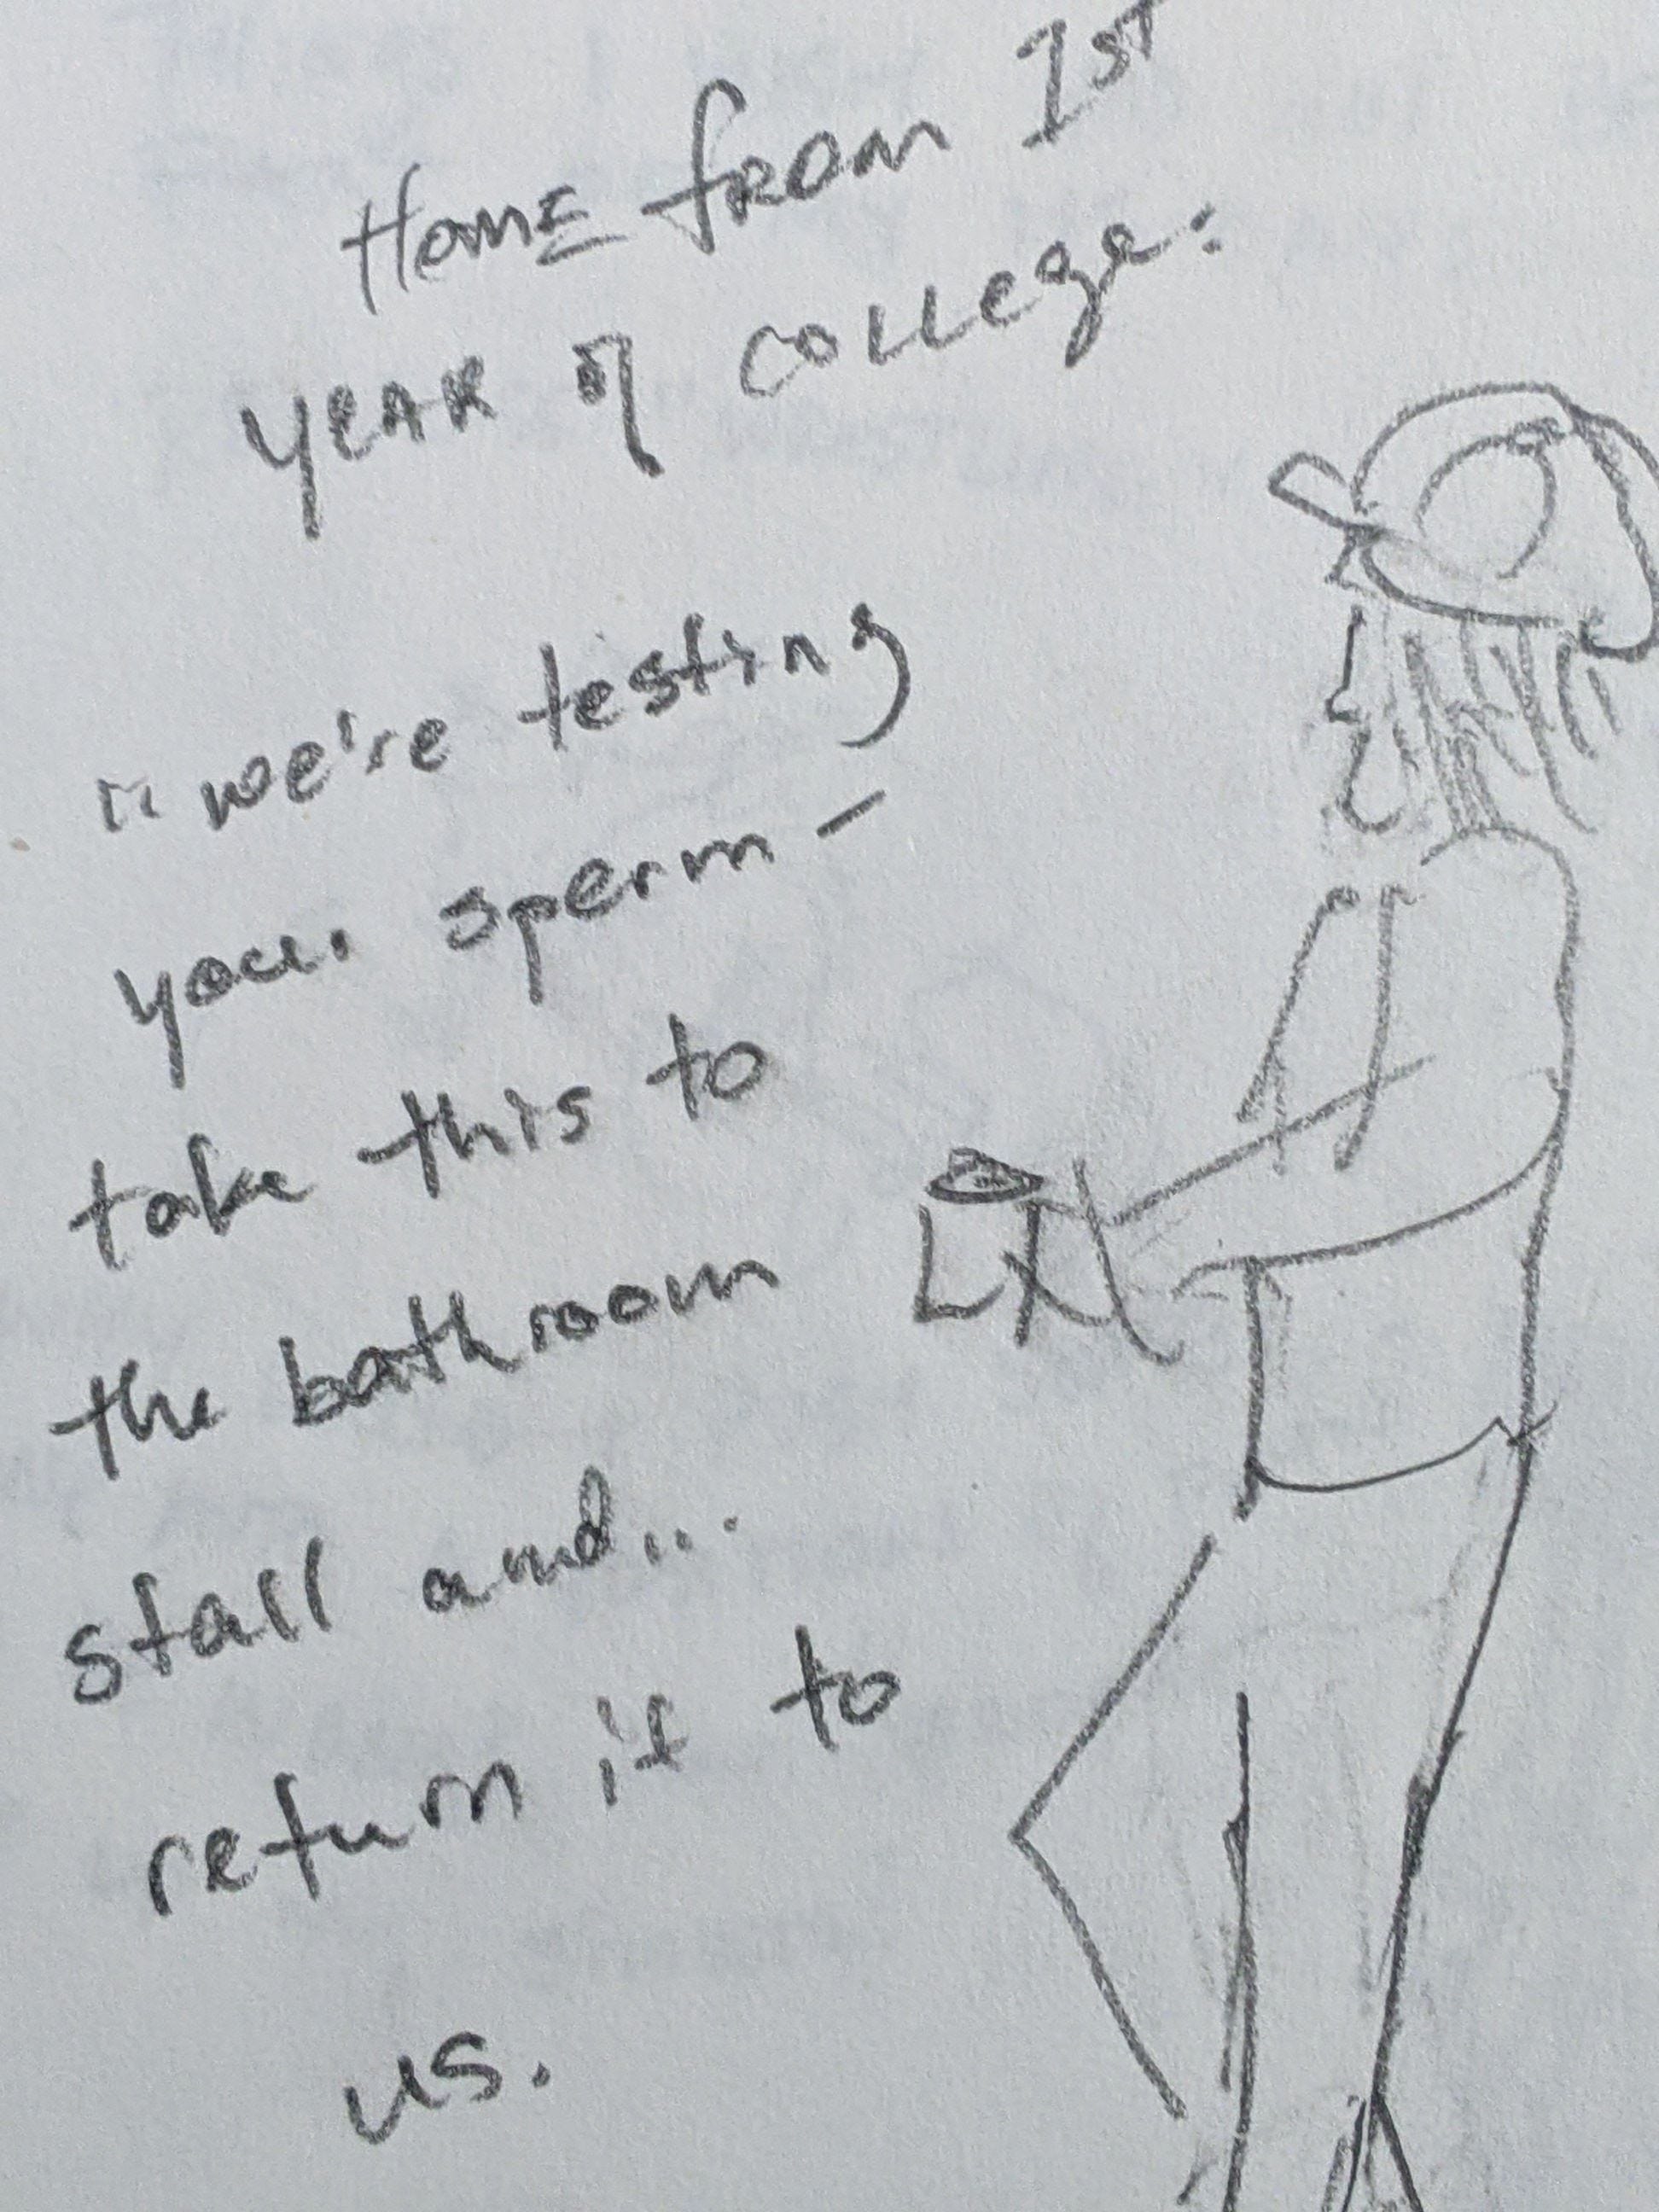 Home from 1st
year of college:
"we're testing
your sperm –
take this to
the bathroom
stall and...
return it to
us.